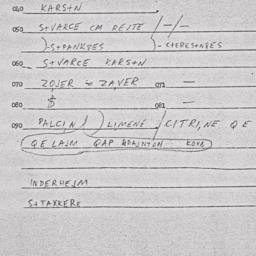 040 KARSTN
050 S+VARCE CM REITE /-/-
)-S+PANKSES )- CHERES+NSES
060 S+VARCE KARS+N
070 ZOJER ~ ZAVER 071 —
080 081 —
090 PALCIN / ) LIMENE / CITRI,NE QE
QE LAJM QAP KOVA
INDERHEJM
S+TAKKERE